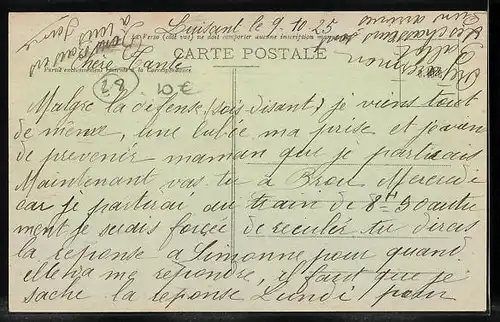 Luisant le 9.10.25
Le Verso (côté vue) ne doit comporter aucune inscription
CARTE POSTALE
Partie exclusivement réservée à la Correspondance
Chère Tante
28
10 €
Malgre la defense (sois disant) je viens tout
de même, une idée ma prise et je viens
de prevenir maman que je partirais
Maintenant vas. tu à Brou Mercredi
car je partirai au train de 8H 30 autre
ment je serais forcée de reculer tu diras
la reponse a Simonne pour quand
elle va me repondre, il faut que je
sache la reponse Lundi pour